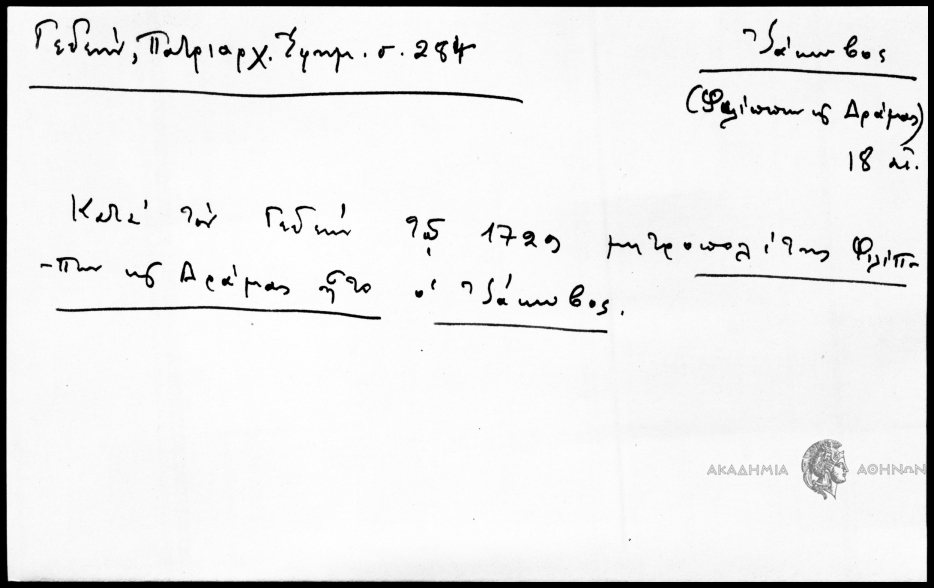 Γεδεών, Πατριαρχ. Ἐφημ. σ. 284
Ἰάκωβος
(Φιλίππων κ Δράμας)
18 αἰ.
Κατά τόν Γεδεών τῷ 1729 μητροπολίτης Φιλίπ-
-πων κ Δράμας ἦτο ὁ Ἰάκωβος.
ΑΚΑΔΗΜΙΑ ΑΘΗΝΩΝ